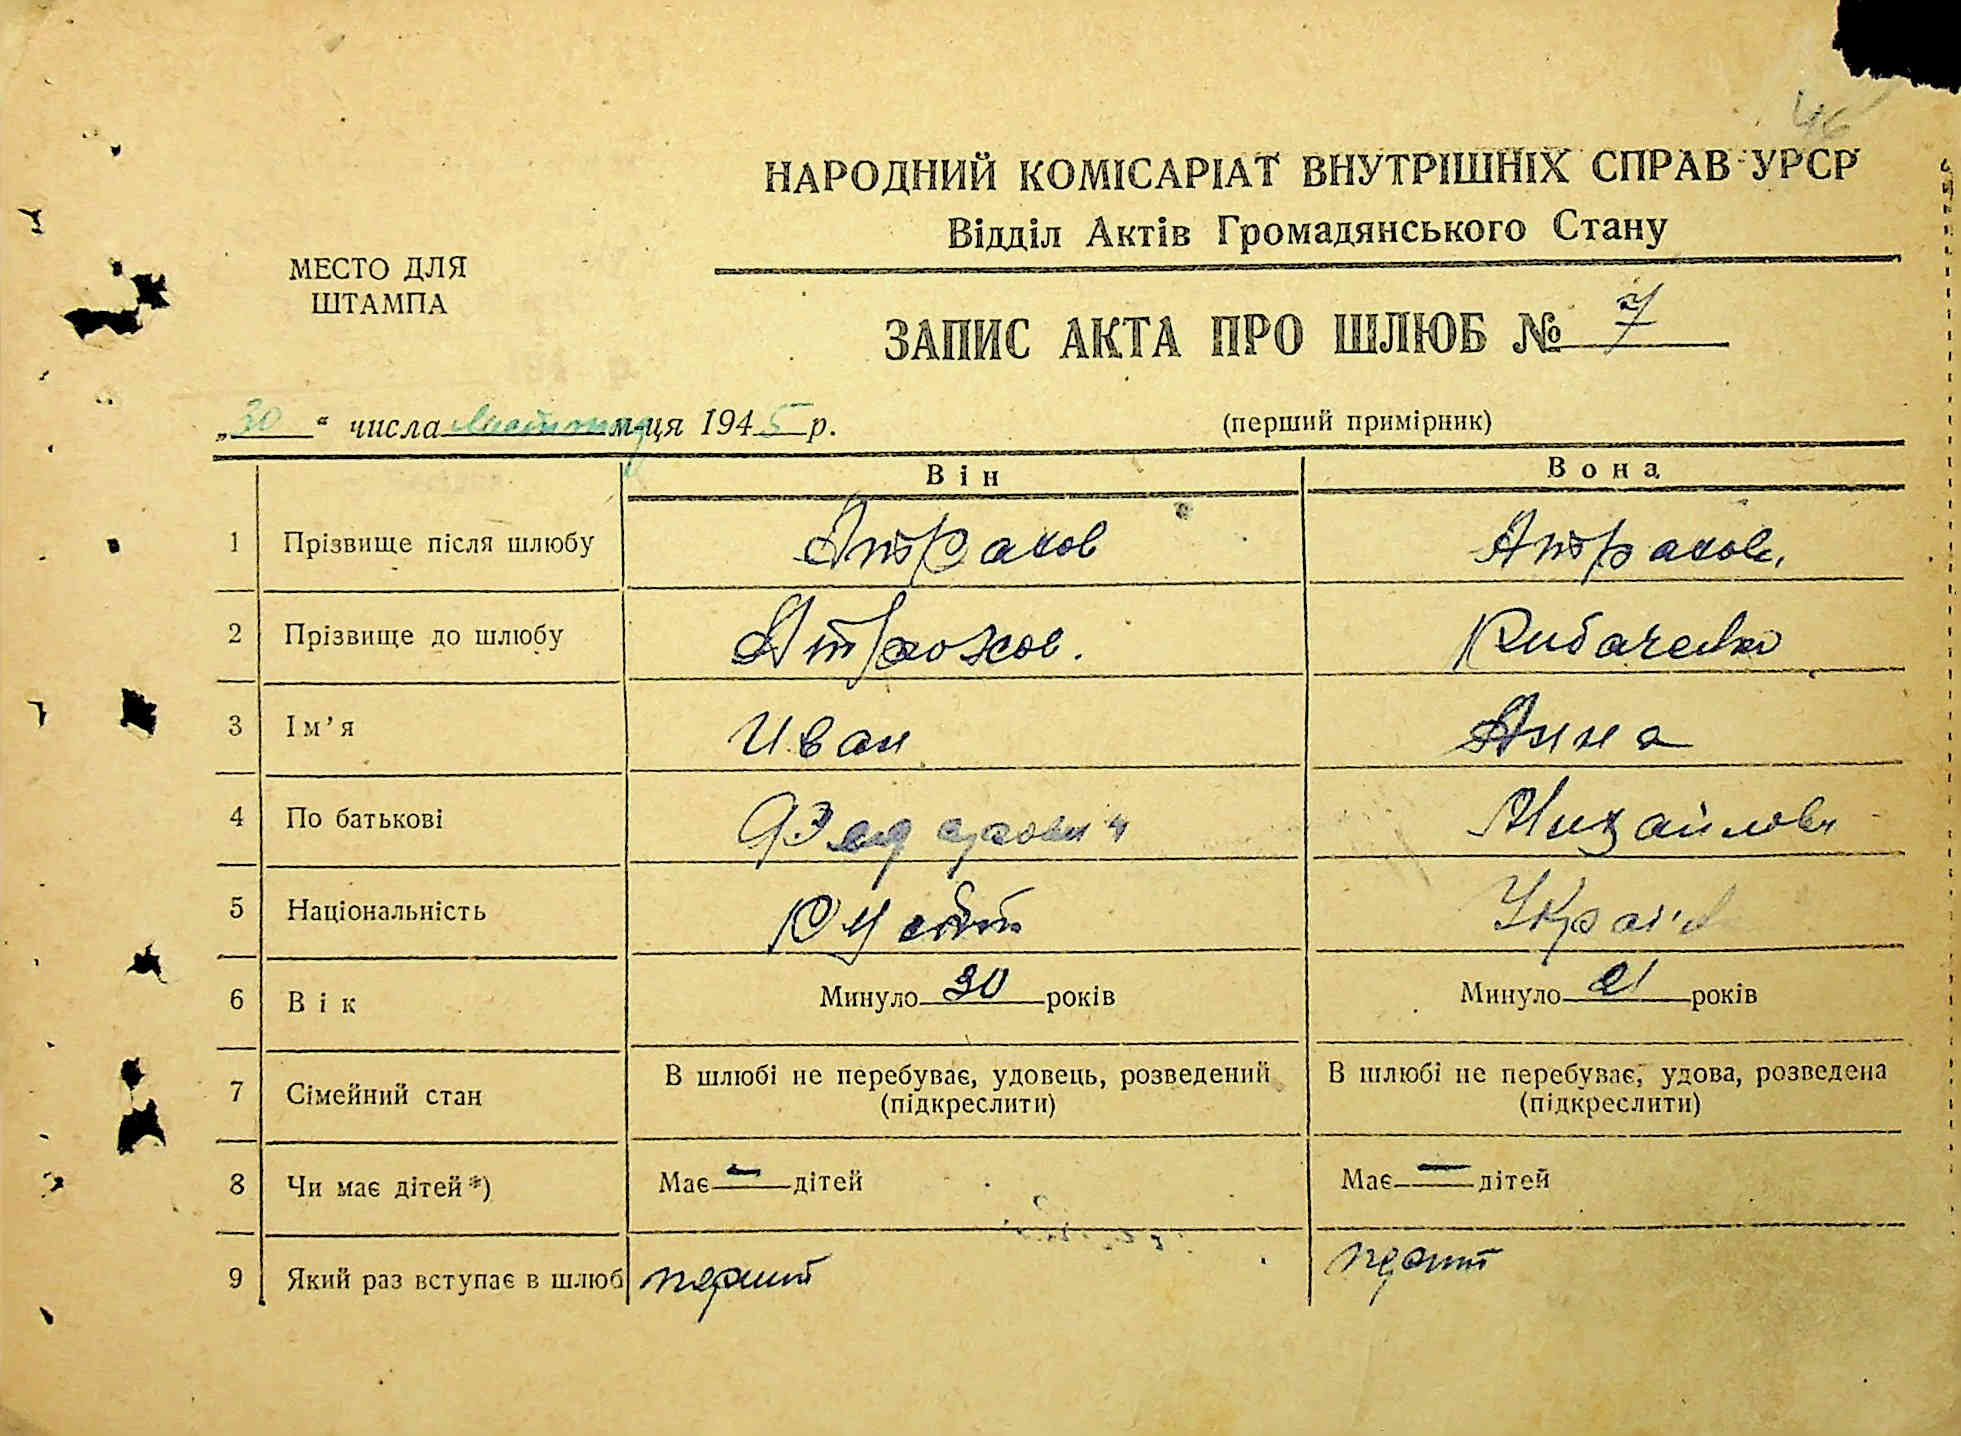 46
НАРОДНИЙ КОМІСАРІАТ ВНУТРІШНІХ СПРАВ УРСР
Відділ Актів Громадянського Стану
МЕСТО ДЛЯ
ШТАМПА
ЗАПИС АКТА ПРО ШЛЮБ № 7
„30“ числа листопад м-ця 1945 р.
(перший примірник)
Він
Вона
1 Прізвище після шлюбу
2 Прізвище до шлюбу Рибаченко
3 Ім'я Иван Анна
4 По батькові Михайловн
5 Національність
6 Вік Минуло 30 років Минуло 21 років
7 Сімейний стан В шлюбі не перебуває, удовець, розведений В шлюбі не перебуває, удова, розведена
(підкреслити) (підкреслити)
8 Чи має дітей*) Має — дітей Має — дітей
9 Який раз вступає в шлюб